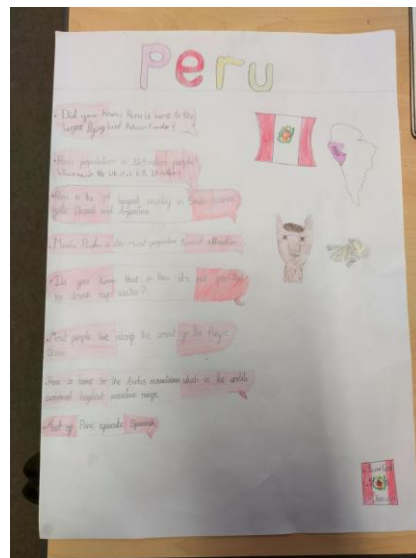 Peru
• Did you know Peru is home to the
largest flying bird Andean Condor?
• Peru population is 32.5 million people!
Whereas in the UK it is
• Peru is the 3rd largest country in South America
after Brazil and Argentina
• Machu Picchu is the most popular tourist attraction
• Did you know that in Peru it's not
to drink tap water?
• Most people live along the coast of the Pacific
Ocean
• Peru is home to the Andes mountains which is the worlds
second highest mountain range
• Most of Peru speaks Spanish